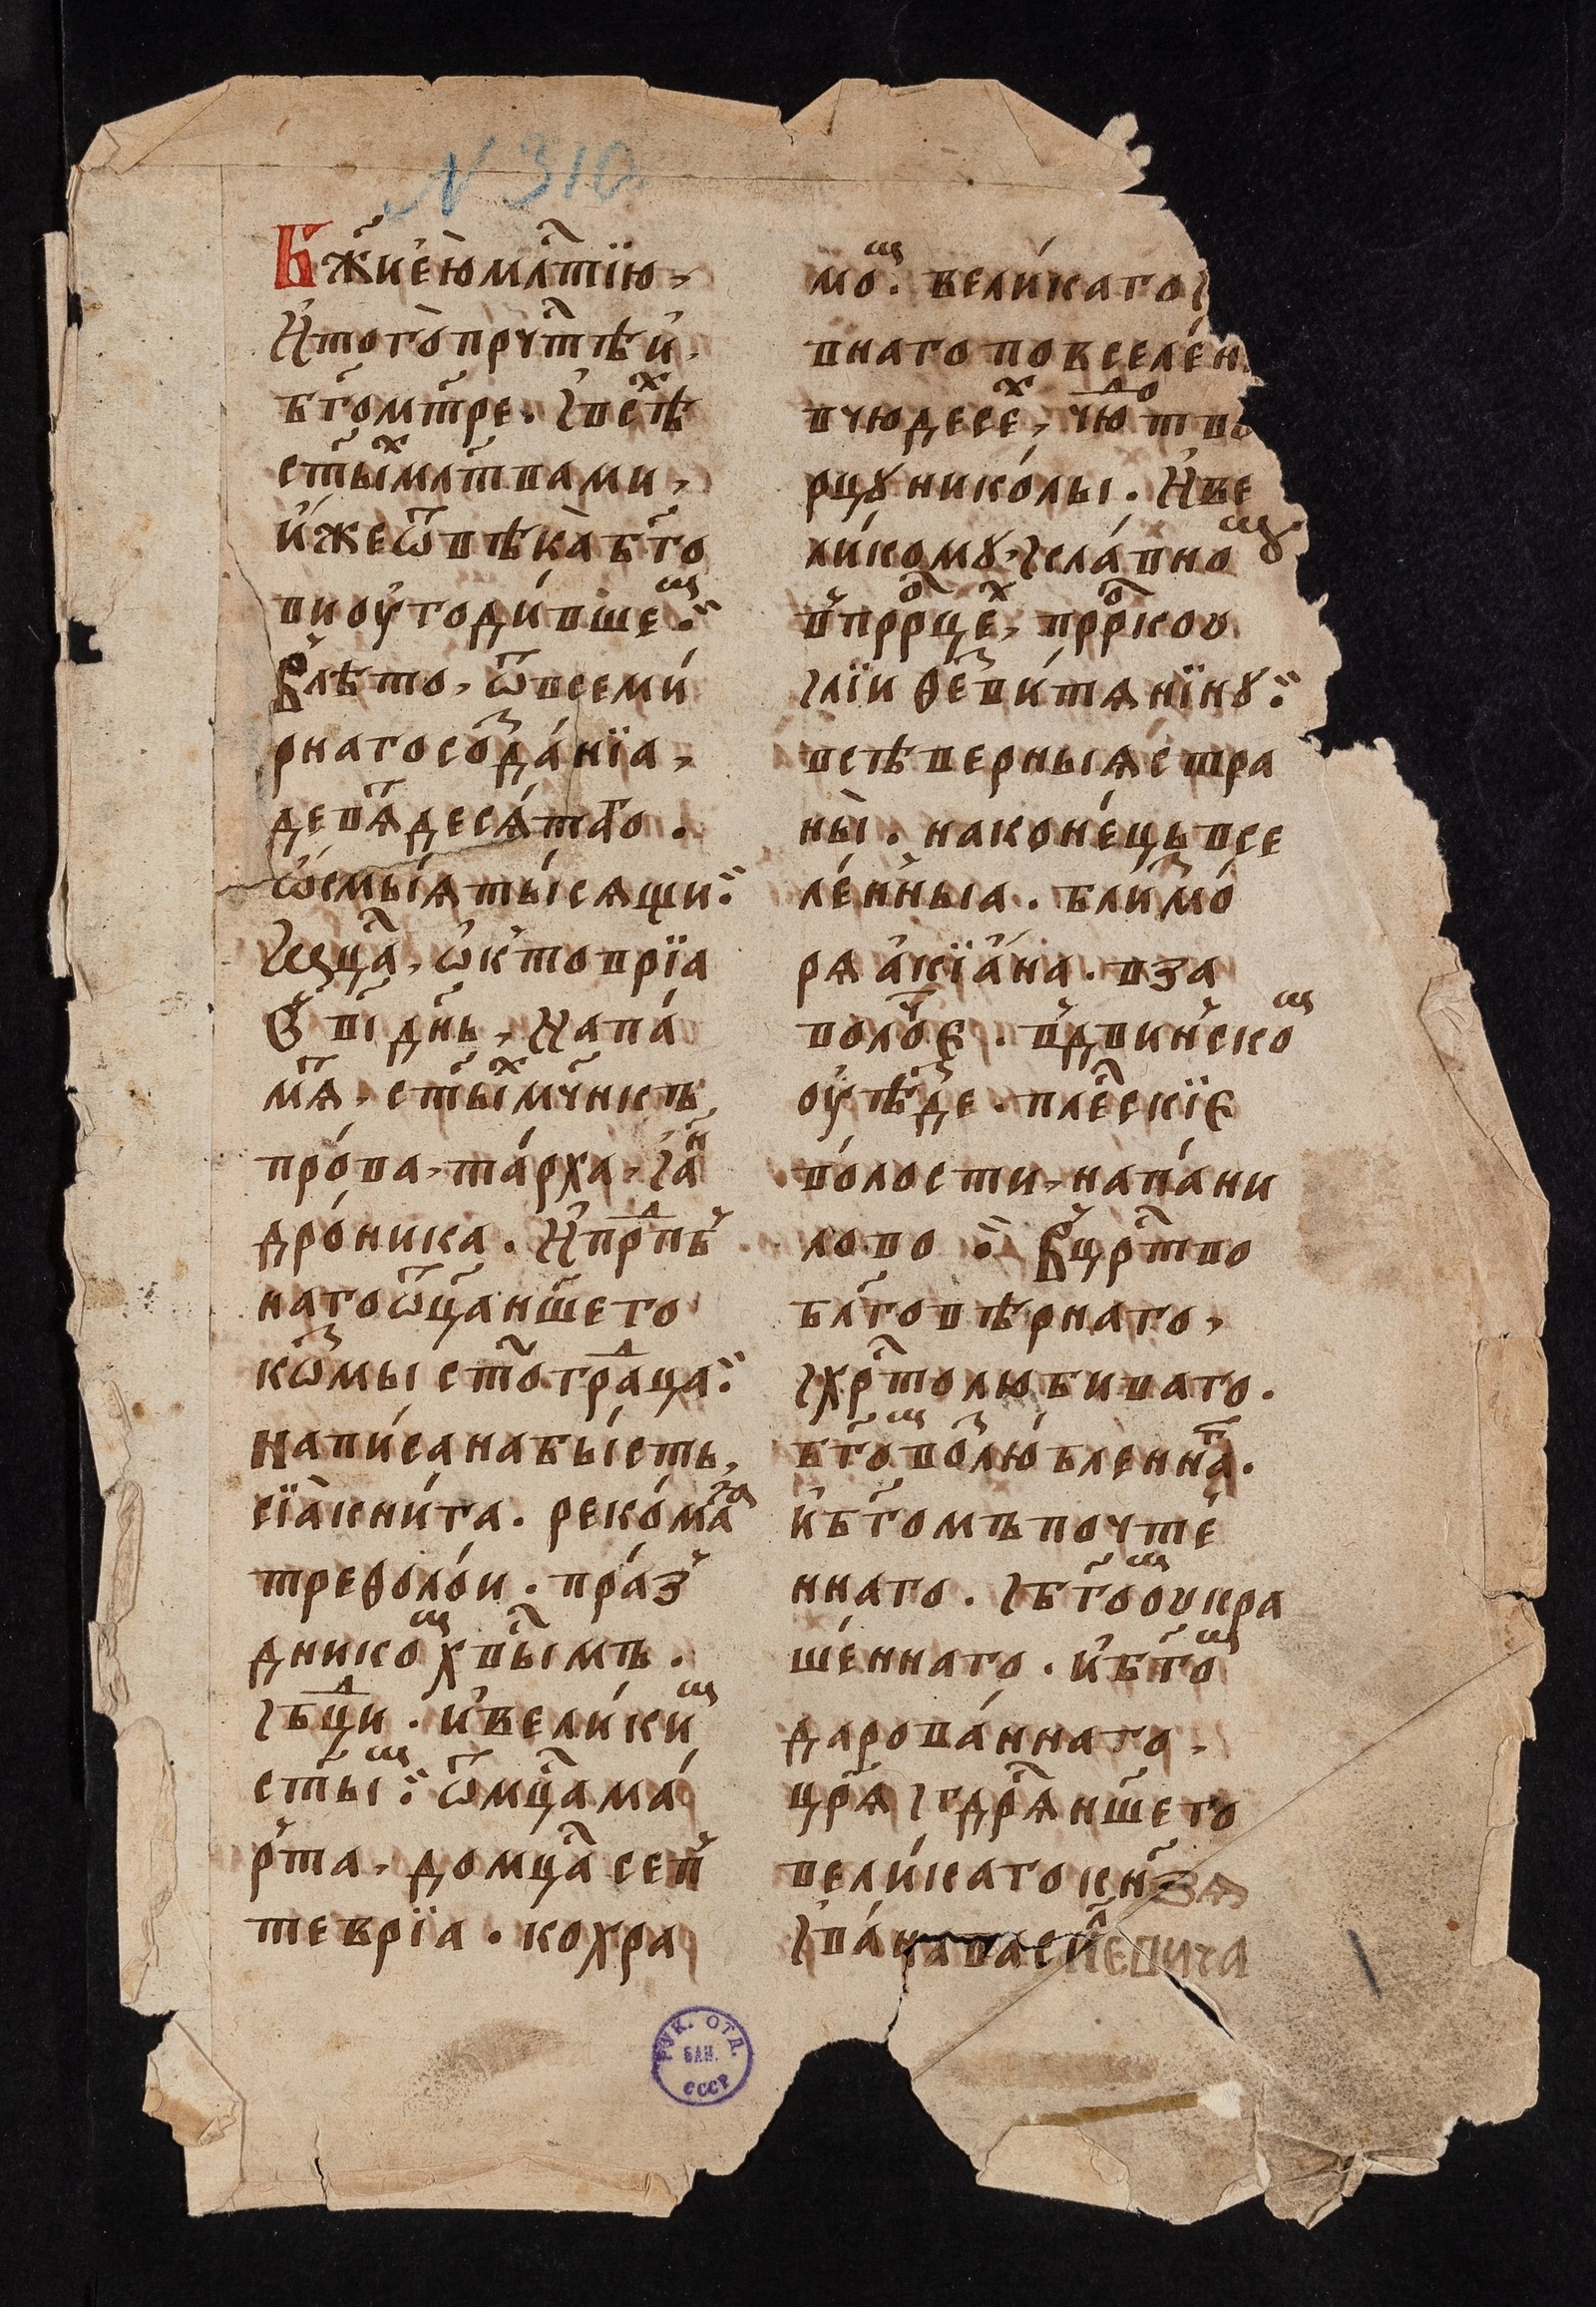 N 310
Бж҃иею мл҇тїю,
и҆ того прч҇тѣи,
бг҃омт҃ре. і всѣⷯ
ст҃ыⷯ мл҃твами,
и҆же ѿ вѣка бг҃о
ви оу҆годи́вшеⷨ:
В лѣто, ѿ всеми́
рнаго соⷥда́нїа,
девѧ҇десѧ́таⷢо.
ѡ҆смы́ѧ ты́сѧщи:
Мц҇а, ѡ҆ктоврїа
в҃і дн҃ь, На па́
мⷮѧ, ст҃ыⷯ мч҃никъ,
про́ва, та́рха, і аⷩ
дро́ника. И҆ прⷣпⷠ
наго ѿц҃а нш҃его
коⷥмы ст҃огрⷣаца:
Напи́сана бы́сть,
сїа кни́га. реко́маⷶ
трефоло́и. пра́з
дникоⷨ хв҇ымъ.
і бцⷣи. и҆ вели́киⷨ
ст҃ыⷨ: ѿ мц҇а ма́
рта, до мц҇а сеп
тевріа. ко хра
моⷨ. вели́каго і
внаго по вселе́н
в чюдесеⷯ, чюⷣⷪтво
рцꙋ нико́лы. И҆ ве
ли́комꙋ, і сла́вноⷨꙋ
в прⷪ҇рцеⷯ, прⷪ҇рокоу
і лїи феⷥви́тѧнїнꙋ:
в сѣверныѧ стра
ны̀. на коне́ць все
ле́нныа. блиⷥ мо́
рѧ а҆кїа́на. в за
волоⷱе. в двинскоⷨ
оу҆ѣⷥде. пле҇скїе
во́лости, на па́ни
лово : В цр҇тво
бл҃говѣрнаго,
і хр҇толюбиваго.
бг҃оⷨ воⷥлю́бленнаⷢ.
и҆ бг҃омъ почте́
ннаго. і бг҃оⷨ оукра
ше́ннаго. и҆ бг҃оⷨ
дарова́ннаго.
цр҃ѧ і гдр҇ѧ нш҃его
вели́каго кн҃зѧ
і ва́на васи҇лꙗевича
РУК. ОТД.
БАН.
СССР